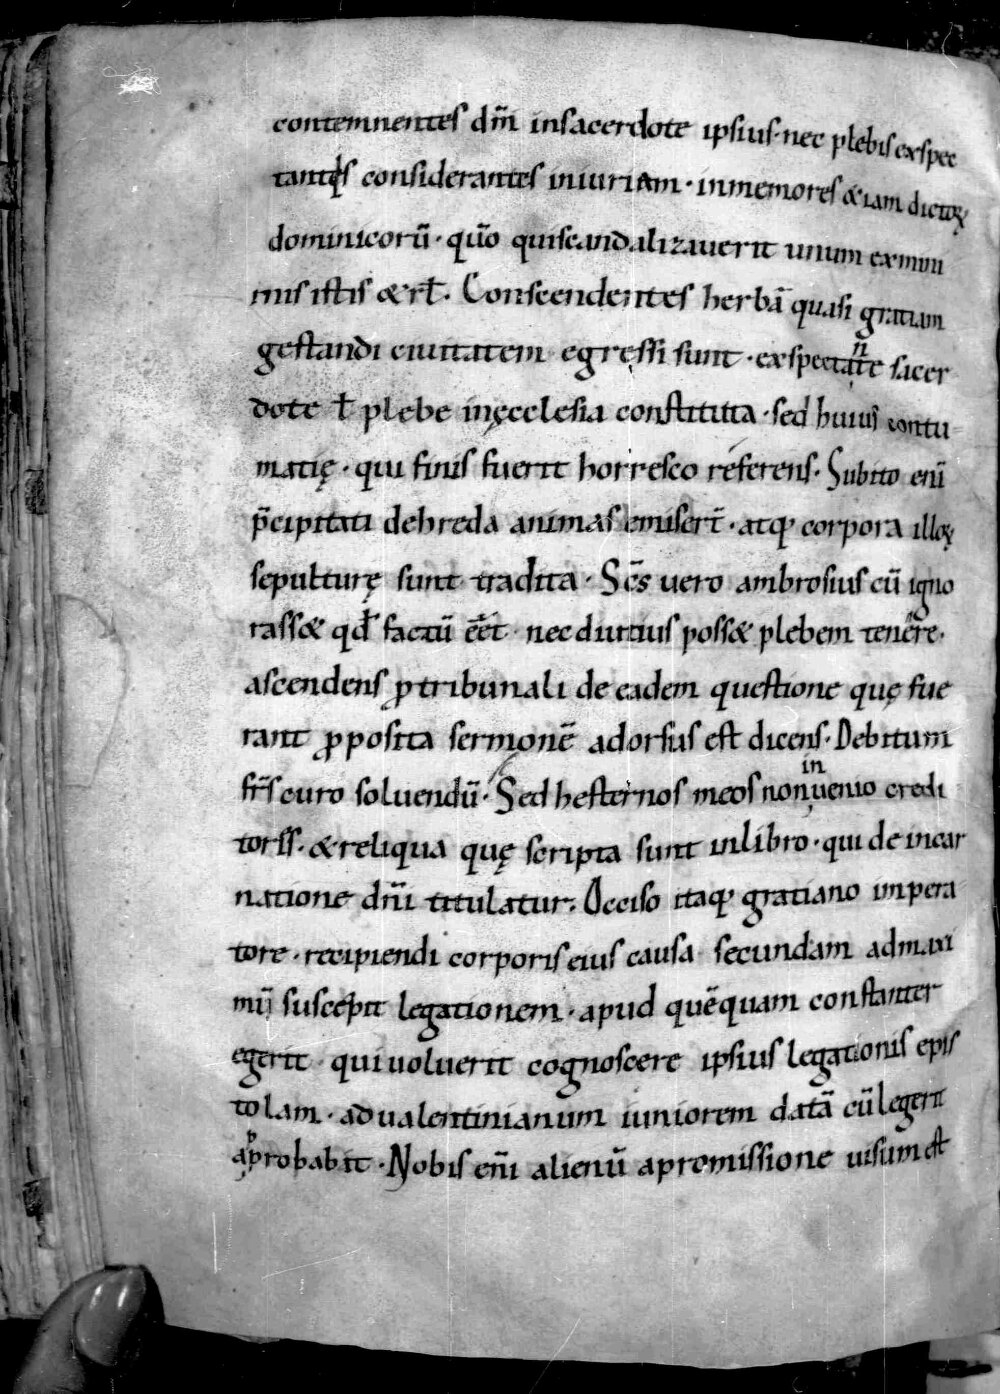 contemnentes dm̄ insacerdote ipsius· nec plebis exspec
tantis considerantes iniuriam · inmemores &iam dictoꝝ
dominicorū · qūo quiscandalizauerit unum exmini
mis istis &rł. Conscendentes herbā quasi gratiam
gestandi ciuitatem egressi sunt · exspectante sacer
dote ł plebe inęcclesia constituta · sed huius contu
matię · qui finis fuerit horresco referens · Subito eni̅
p̄cipitati dehreda animas emiser̄t · atq; corpora illoꝝ
sepulturę sunt tradita · Sc̄s uero ambrosius cū igno
rass& qđ factū eēt · necdiutius poss& plebem tenere ·
ascendens ꝓtribunali de eadem questione quę fue
rant ꝓposita sermonē adorsus est dicens · Debitum
fr̄s euro soluendū · Sed hesternos meos non inuenio credi
torss · &reliqua quę scripta sunt inlibro · qui de incar
natione dn̄i titulatur. Occiso itaq; gratiano impera
tore · recipiendi corporis eius causa secundam admaxi
mū suscepit legationem · apud quēquam constanter
egerit · qui uoluerit cognoscere ipsius legationis epis
tolam · ad ualentinianum iuniorem datā cū legerit
approbabit · Nobis eni̅ alienū apromissione uisum est